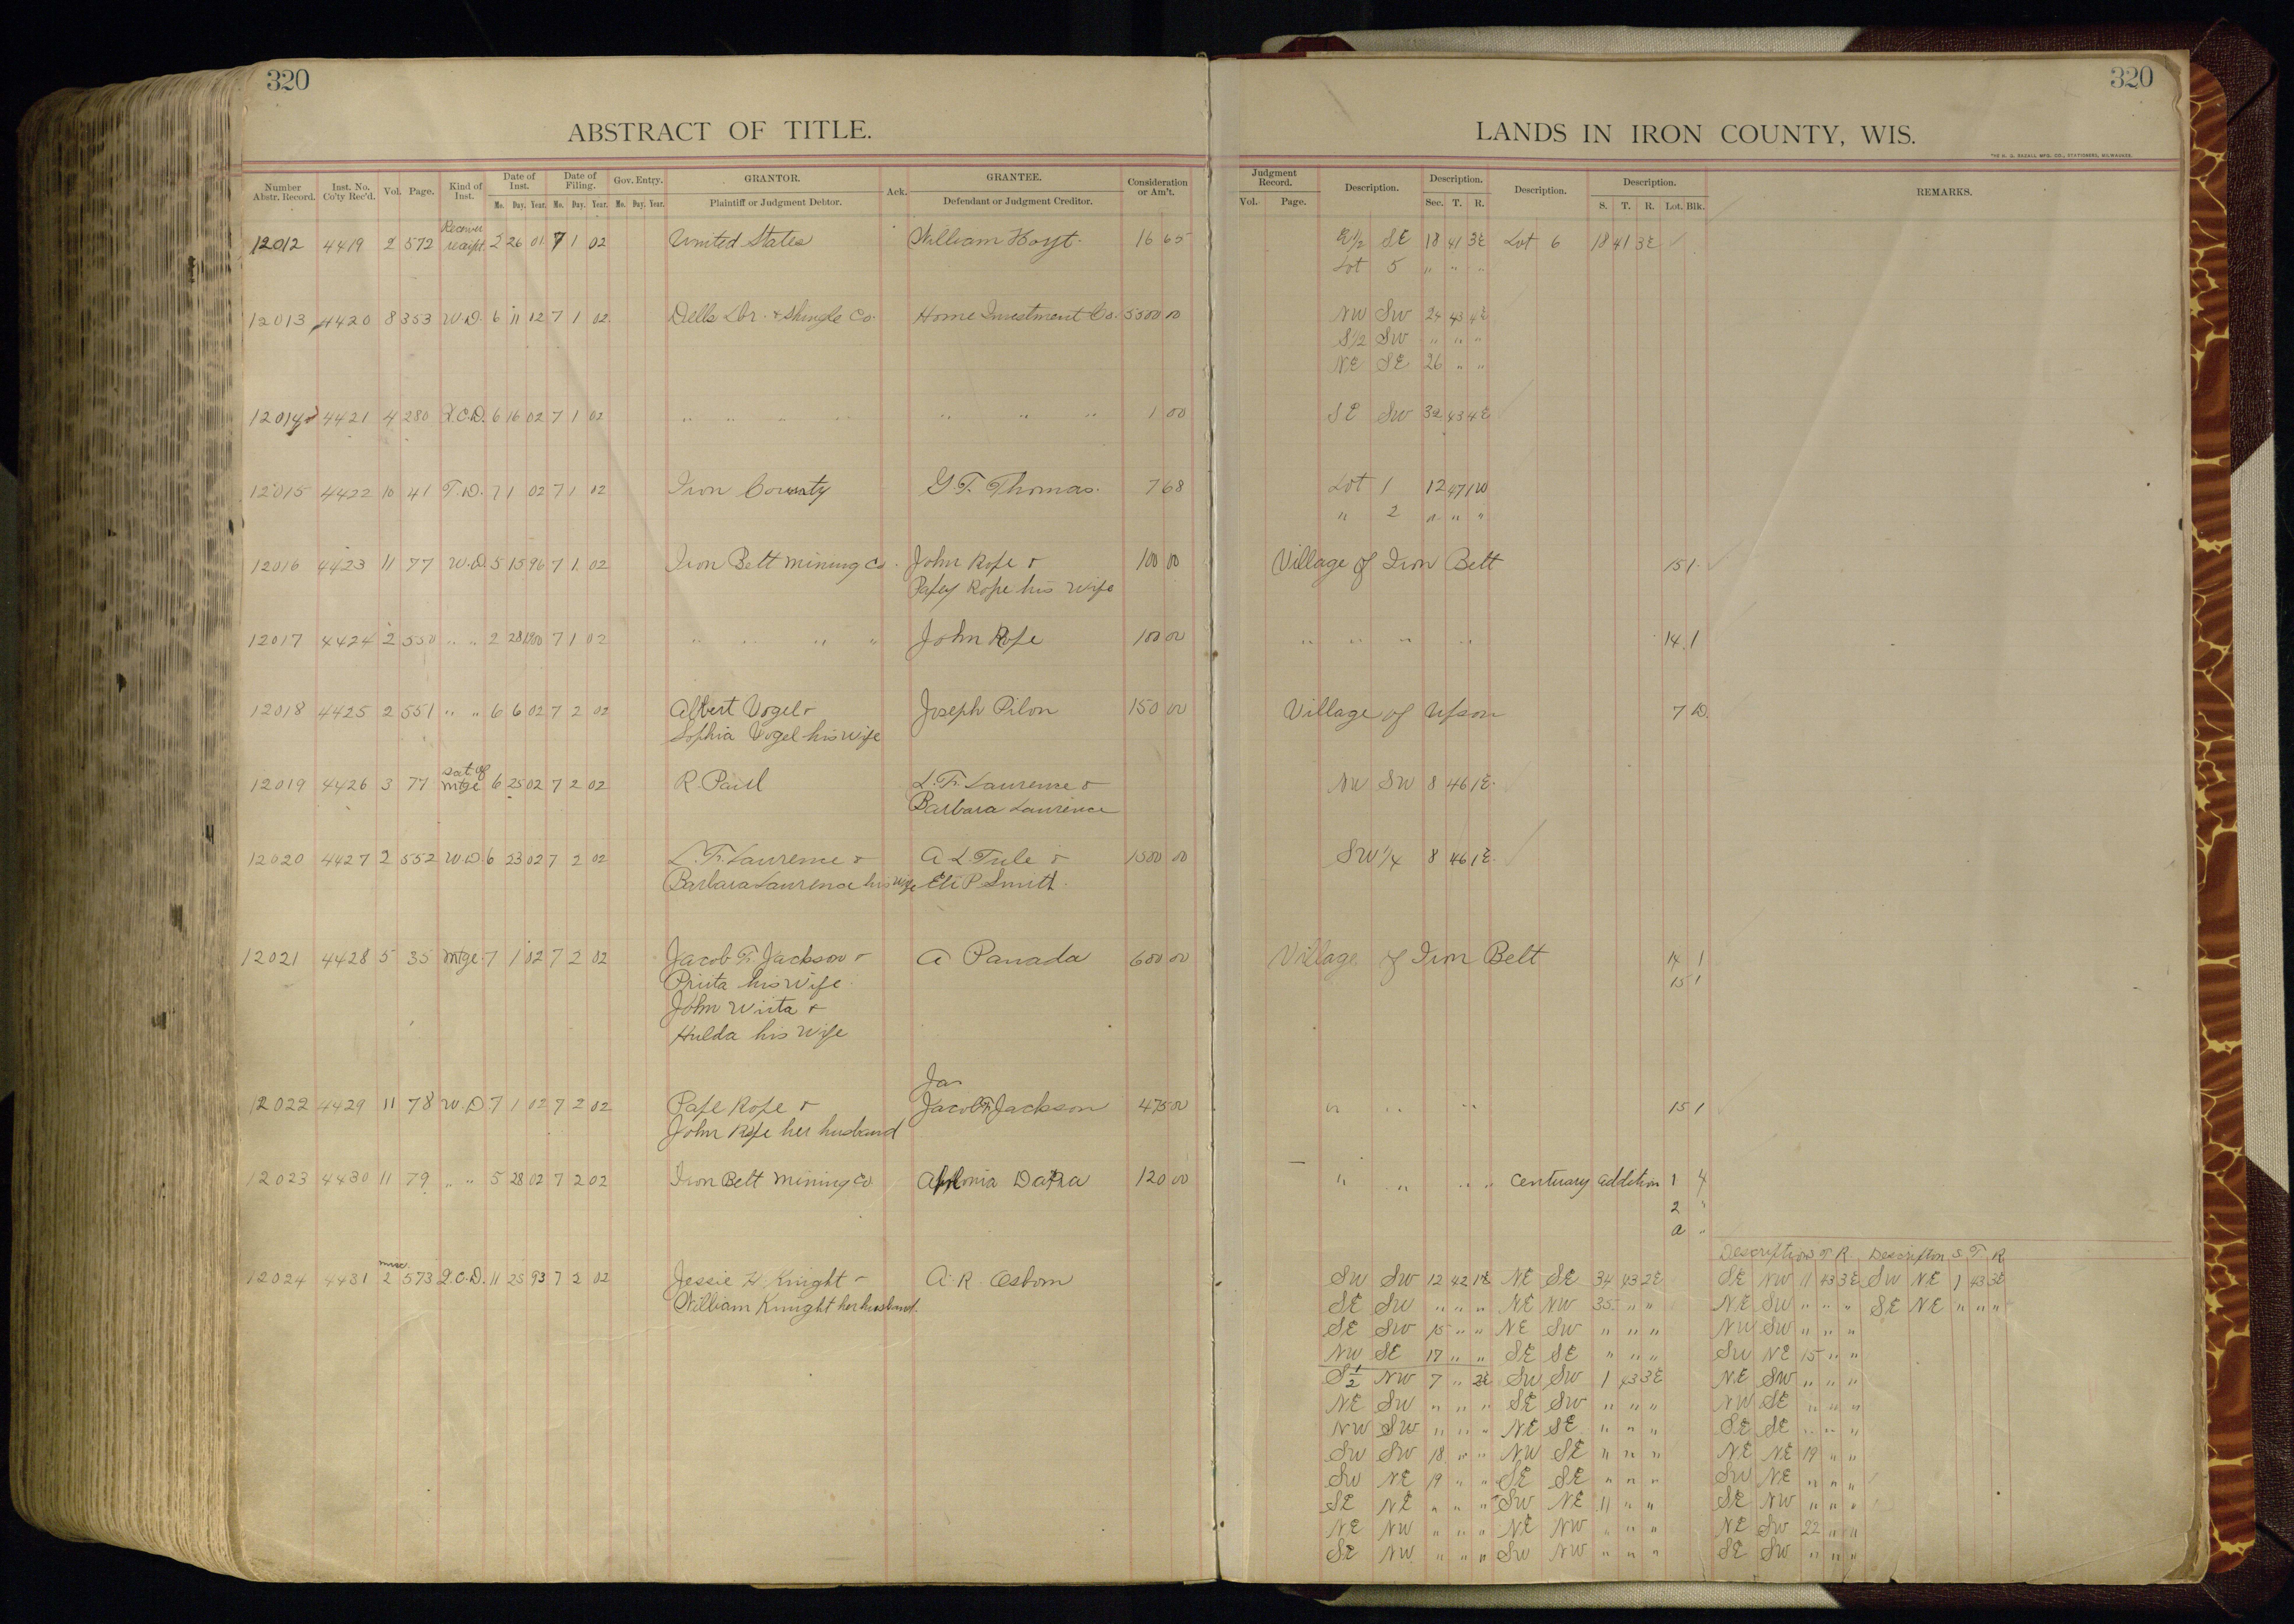 320
320
ABSTRACT OF TITLE.
LANDS IN IRON COUNTY, WIS.
Number Abstr. Record. Inst. No. Co'ty Rec'd. Vol. Page. Kind of Inst. Date of Inst. Mo. Day. Year. Date of Filing. Mo. Day. Year. Gov. Entry. Mo. Day. Year. GRANTOR. Plaintiff or Judgment Debtor. Ack. GRANTEE. Defendant or Judgment Creditor. Consideration or Am't. Judgment Record. Vol. Page. Description. Description. Sec. T. R. Description. Description. S. T. R. Lot. Blk. REMARKS.
12012 4419 2 572 Receiver receipt 2 26 01 7 1 02 United States William Hoyt. 16 65 E½ SE 18 41 3E Lot 6 18 41 3E
Lot 5 " " "
12013 4420 8 353 W.D. 6 11 12 7 1 02 Dells Lbr. & Shingle Co. Home Investment Co. 5500 00 NW SW 24 43 4E
S½ SW " " "
NE SE 26 " "
12014 4421 4 280 Q.C.D. 6 16 02 7 1 02 " " " " " " " 1 00 SE SW 32 43 4E
12015 4422 10 41 T.D. 7 1 02 7 1 02 Iron County G.T. Thomas. 7 68 Lot 1 12 47 1W
" 2 " " "
12016 4423 11 77 W.D. 5 15 96 7 1 02 Iron Belt Mining Co. John Rope & 100 00 Village of Iron Belt 15 1
Rope his wife
12017 4424 2 550 " " 2 28 1900 7 1 02 " " " " John Rope 100 00 " " " " 14 1
12018 4425 2 551 " " 6 6 02 7 2 02 Albert Vogel & Joseph Pilon 150 00 Village of Upson 7 D.
Sophia Vogel his wife
12019 4426 3 77 Sat. of Mtge 6 25 02 7 2 02 R. Paul L.F. Laurence & NW SW 8 46 1E.
Barbara Laurence
12020 4427 2 552 W.D. 6 23 02 7 2 02 L.F. Laurence & A L Tule & 1500 00 SW¼ 8 46 1E.
Barbara Laurence his wife Eli P Smith.
12021 4428 5 35 Mtge. 7 1 02 7 2 02 Jacob F. Jackson & A Panada 600 00 Village of Iron Belt 14 1
his wife. 15 1
John Wiita &
Hulda his wife
Jas
12022 4429 11 78 W.D. 7 1 02 7 2 02 Pape Rope & Jacob F. Jackson 475 00 " " " 15 1
John Rope her husband
12023 4430 11 79 " " 5 28 02 7 2 02 Iron Belt Mining Co 120 00 " " " " Centuary addition 1 4
2 "
a "
Description S T R Description S T R
12024 4431 misc. 2 573 Q.C.D. 11 25 93 7 2 02 Jessie H. Knight & A. R. Osborn SW SW 12 42 1E NE SE 34 43 2E SE NW 11 43 3E SW NE 1 43 3E
William Knight her husband. SE SW " " " NE NW 35 " " NE SW " " " SE NE " " "
SE SW 15 " " NE SW " " " NW SW " " "
NW SE 17 " " SE SE " " " SW NE 15 " "
S½ NW 7 " 2E SW SW 1 43 3E NE SW " " "
NE SW " " " SE SW " " " NW SE " " "
NW SW " " " NE SE " " " SE SE " " "
SW SW 18 " " NW SE " " " NE NE 19 " "
SW NE 19 " " SE SE " " " SW NE " " "
SE NE " " " SW NE 11 " " SE NW " " "
NE NW " " " NE NW " " " NE SW 22 " "
SE NW " " " SW NW " " " SE SW " " "